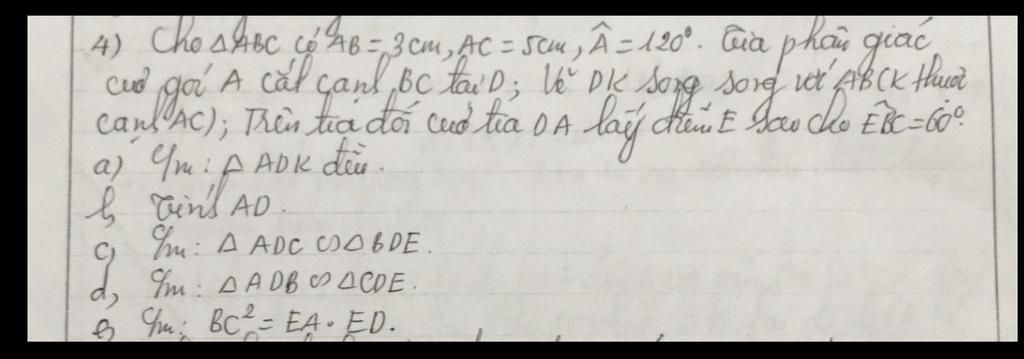 4) Cho △ABC có AB = 3cm, AC = 5cm, Â = 120°. Tia phân giác
của góc A cắt cạnh BC tại D; Vẽ DK song song với AB (K thuộc
cạnh AC); Trên tia đối của tia DA lấy điểm E sao cho EB̂C = 60°.
a) C/m: △ ADK đều.
b, Tính AD.
c, C/m: △ ADC ∽ △ BDE.
d, C/m: △ ADB ∽ △CDE.
e, C/m: BC² = EA . ED.